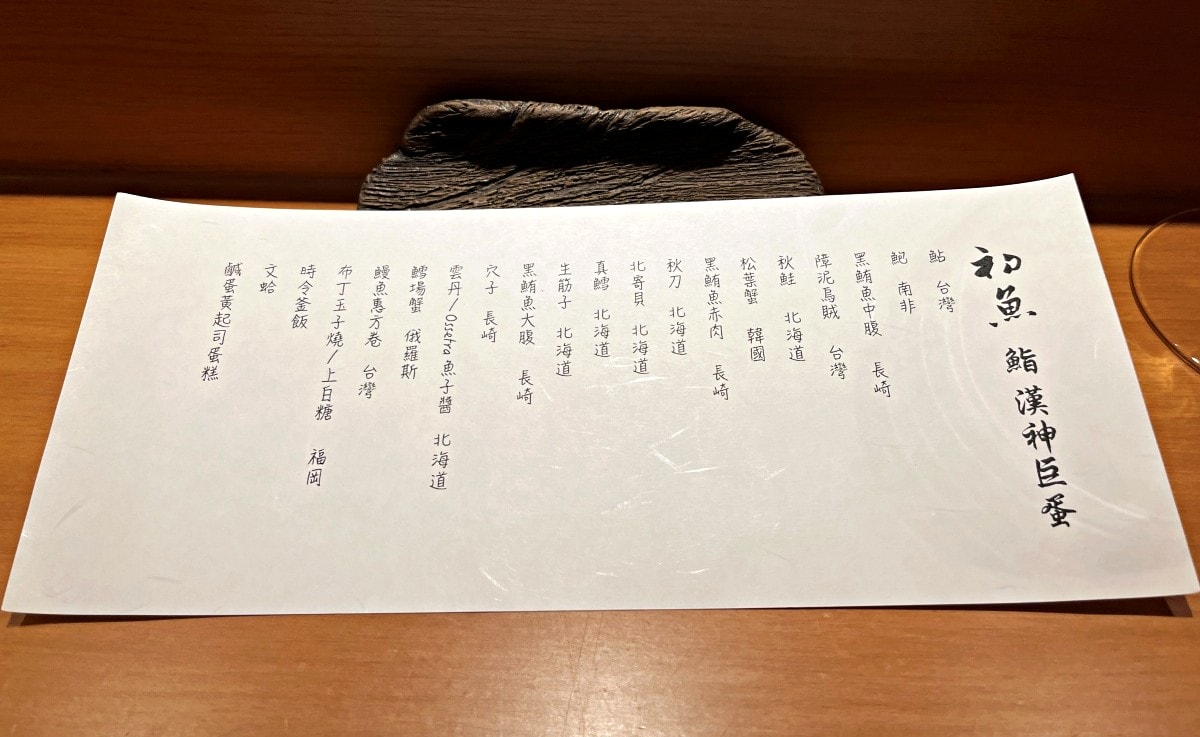 初魚 鮨 漢神巨蛋
鮎 台灣
鮑 南非
黑鮪魚中腹 長崎
障泥烏賊 台灣
秋鮭 北海道
松葉蟹 韓國
黑鮪魚赤肉 長崎
秋刀 北海道
北寄貝 北海道
真鱈 北海道
生筋子 北海道
黑鮪魚大腹 長崎
穴子 長崎
雲丹/Ossetra魚子醬 北海道
鱈場蟹 俄羅斯
鰻魚惠方卷 台灣
布丁玉子燒/上白糖 福岡
時令釜飯
文蛤
鹹蛋黃起司蛋糕